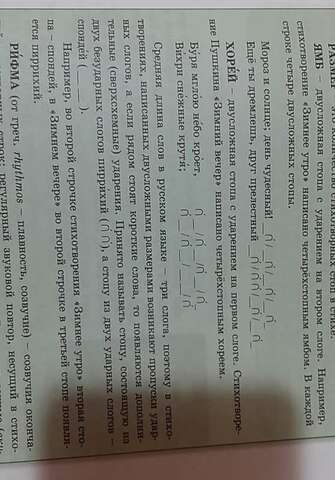 ЯМБ – двусложная стопа с ударением на втором слоге. Например,
стихотворение «Зимнее утро» написано четырёхстопным ямбом. В каждой
строке четыре двусложных стопы.
Мороз и солнце; день чудесный!
Ещё ты дремлешь, друг прелестный
ХОРЕЙ – двусложная стопа с ударением на первом слоге. Стихотворе-
ние Пушкина «Зимний вечер» написано четырёхстопным хореем.
Бу́ря мгло́ю не́бо кро́ет,
Ви́хри сне́жные крутя́;
Средняя длина слов в русском языке – три слога, поэтому в стихо-
творениях, написанных двусложными размерами возникают пропуски удар-
ных слогов, а если рядом стоят короткие слова, то появляются дополни-
тельные (сверхсхемные) ударения. Принято называть стопу, состоящую из
двух безударных слогов пиррихий (∩∩), а стопу из двух ударных слогов –
спондей (_ _).
Например, во второй строчке стихотворения «Зимнее утро» вторая сто-
па – спондей, в «Зимнем вечере» во второй строчке в третьей стопе появля-
ется пиррихий.
РИФМА (от греч. rhythmos – плавность, созвучие) – созвучия оконча-
строк; регулярный звуковой повтор, несущий в стихо-